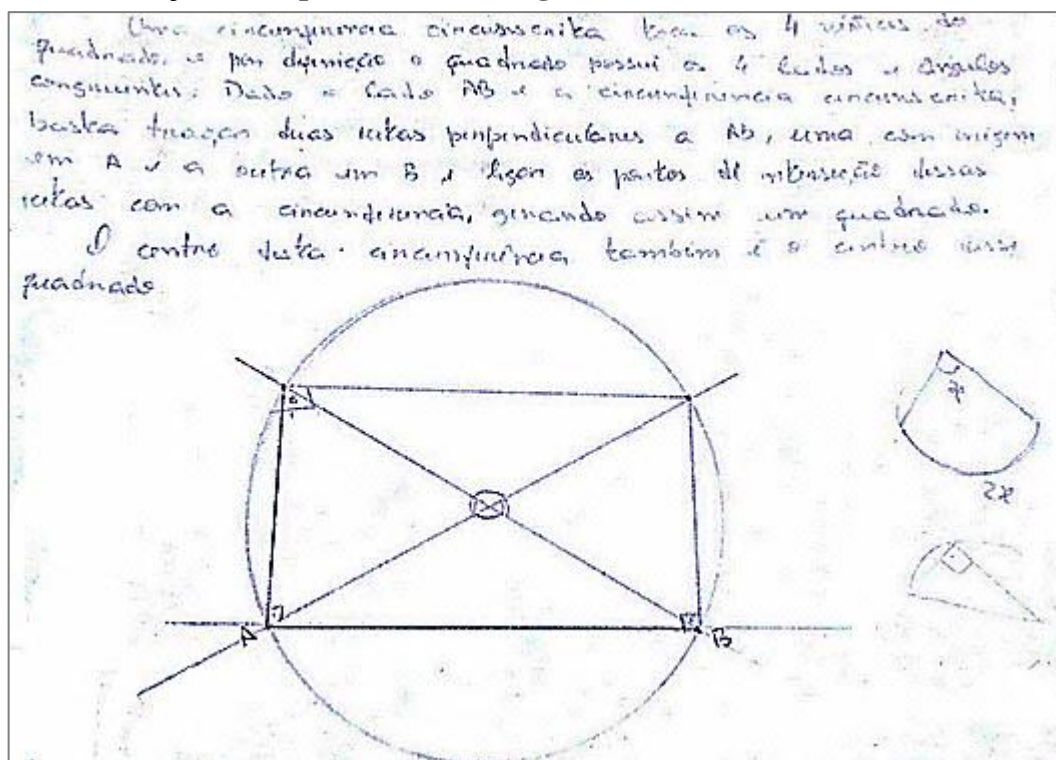 Uma circunferência circunscrita toca os 4 vértices do
quadrado, e por definição o quadrado possui os 4 lados e ângulos
congruentes. Dado o lado AB e a circunferência circunscrita,
basta traçar duas retas perpendiculares a AB, uma com origem
em A e a outra em B e ligar os pontos de interseção dessas
retas com a circunferência, gerando assim um quadrado.
O centro desta circunferência também é o centro desse
quadrado.
x
2x
A
B